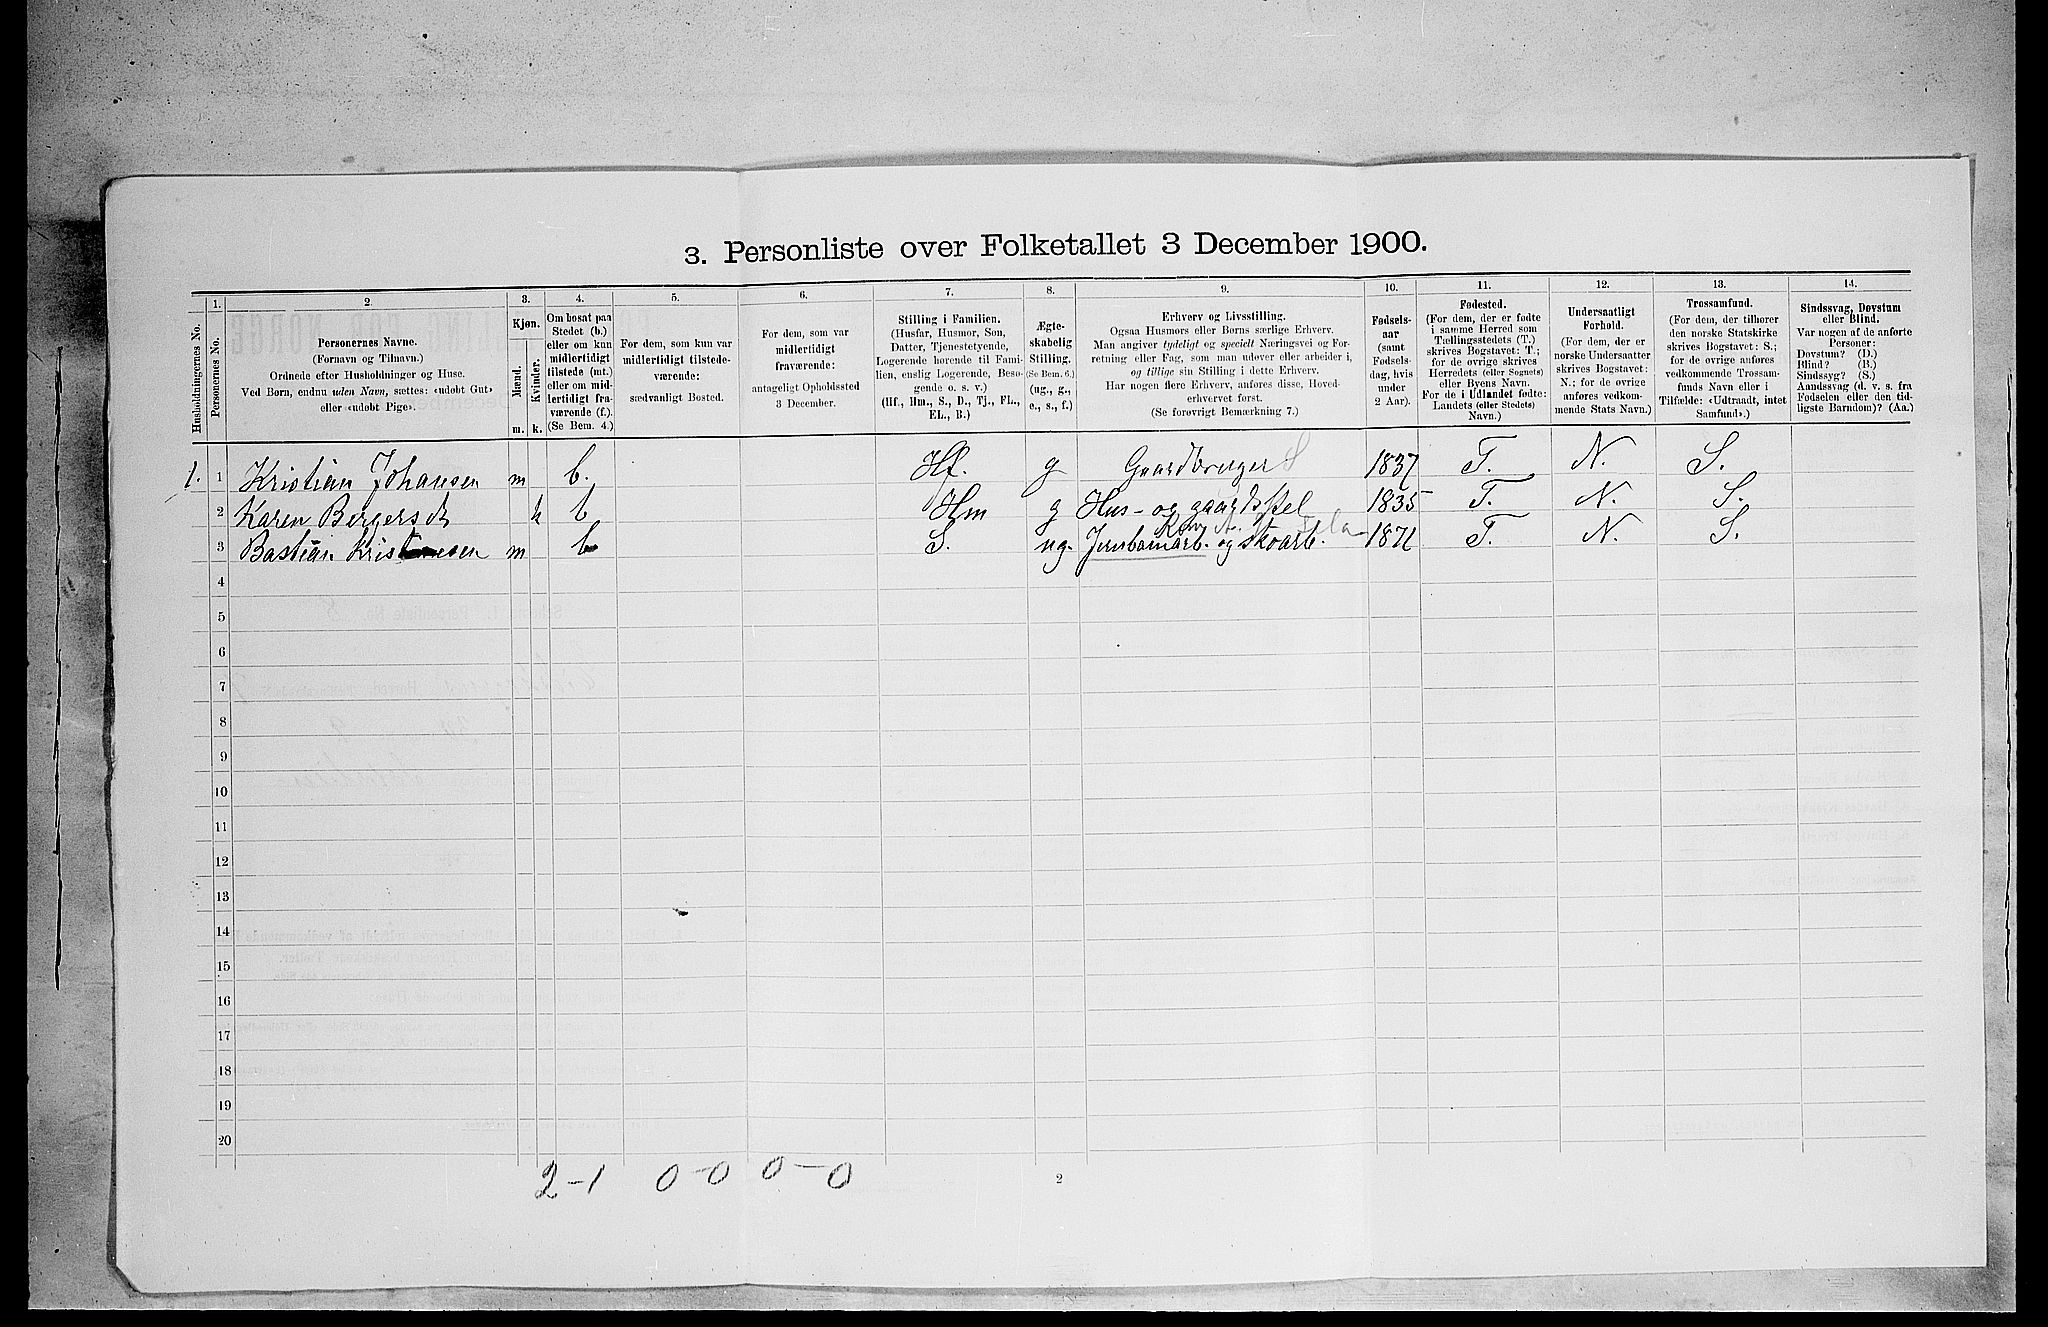 3. Personliste over Folketallet 3 December 1900.
Husholdningernes No.
1.
Personernes No.
2.
Personernes Navne.
(Fornavn og Tilnavn.)
Ordnede efter Husholdninger og Huse.
Ved Børn, endnu uden Navn, sættes: «udøbt Gut»
eller «udøbt Pige».
3.
Kjøn.
Mænd.
Kvinder.
m. k.
4.
Om bosat paa
Stedet (b.)
eller om kun
midlertidigt
tilstede (mt.)
eller om mid-
lertidigt fra-
værende (f.).
(Se Bem. 4.)
5.
For dem, som kun var
midlertidigt tilstede-
værende:
sædvanligt Bosted.
6.
For dem, som var
midlertidigt
fraværende:
antageligt Opholdssted
3 December.
7.
Stilling i Familien.
(Husfar, Husmor, Søn,
Datter, Tjenestetyende,
Logerende hørende til Fami-
lien, enslig Logerende, Besø-
gende o. s. v.)
(Hf., Hm., S., D., Tj., FL.,
EL., B.)
8.
Ægte-
skabelig
Stilling.
(Se Bem. 6.)
(ug., g.,
e., s., f.)
9.
Erhverv og Livsstilling.
Ogsaa Husmors eller Børns særlige Erhverv.
Man angiver tydeligt og specielt Næringsvei og For-
retning eller Fag, som man udøver eller arbeider i,
og tillige sin Stilling i dette Erhverv.
Har nogen flere Erhverv, anføres disse, Hoved-
erhvervet først.
(Se forøvrigt Bemærkning 7.)
10.
Fødsels-
aar
(samt
Fødsels-
dag, hvis
under
2 Aar).
11.
Fødested.
(For dem, der er fødte
i samme Herred som
Tællingsstedets (T.)
skrives Bogstavet: T.;
for de øvrige skrives
Herredets (eller Sognets)
eller Byens Navn.
For de i Udlandet fødte:
Landets (eller Stedets)
Navn.)
12.
Undersaatligt
Forhold.
(For dem, der er
norske Undersaatter
skrives Bogstavet:
N.; for de øvrige
anføres vedkom-
mende Stats Navn.)
13.
Trossamfund.
(For dem, der tilhører
den norske Statskirke
skrives Bogstavet: S.;
for de øvrige anføres
vedkommende Trossam-
funds Navn eller i
Tilfælde: «Udtraadt, intet
Samfund».)
14.
Sindssvag, Døvstum
eller Blind.
Var nogen af de anførte
Personer:
Døvstum? (D.)
Blind? (B.)
Sindssyg? (S.)
Aandssvag (d. v. s. fra
Fødselen eller den tid-
ligste Barndom)? (Aa.)
1. 1 Kristian Johansen m b. Hf. g Gaardbruger S 1837 T. N. S.
2 Karen Bergersdt k b Hm g Hus- og gaardsstel 1835 T. N. S.
3 Bastian Kristensen m b S. ug. Jernbanearb. og skoarb. 1871 T. N. S.
4
5
6
7
8
9
10
11
12
13
14
15
16
17
18
19
20
2-1 0-0 0-0
2